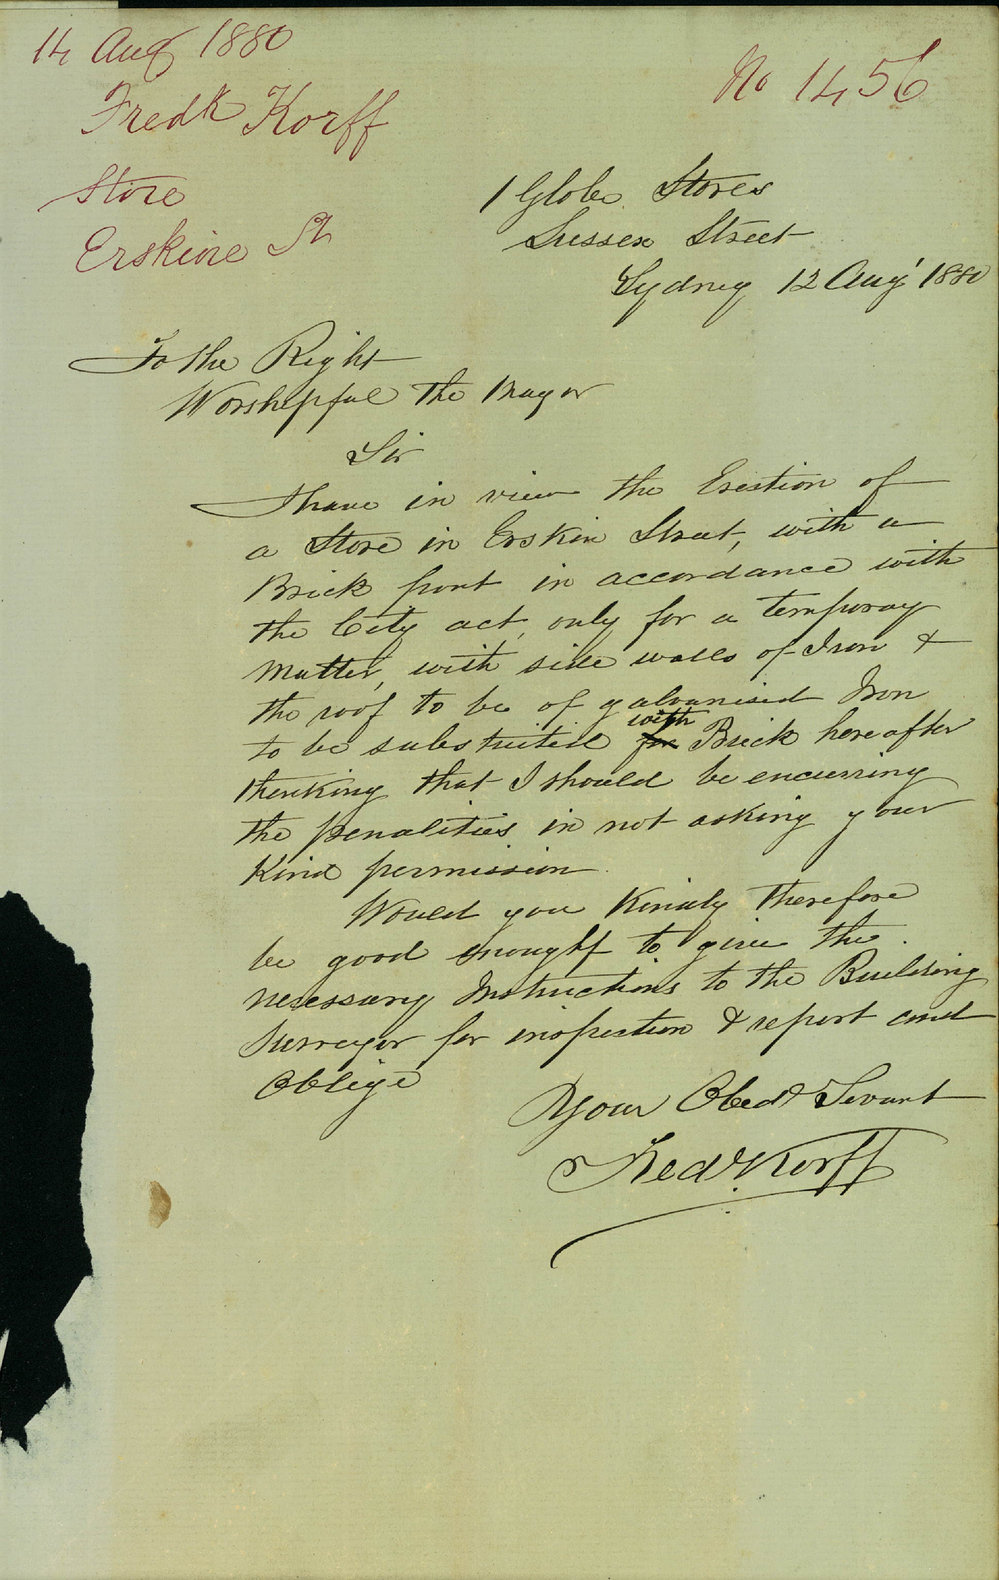 14 Aug 1880
No 1456
Fredk Korff
Store
Erskine St
1 Globe Stores
Sussex Street
Sydney 12 Aug' 1880
To the Right
Worshipful the Mayor
Sir
I have in view the Erection of
a Store in Erskin Street, with a
Brick front in accordance with
the City act, only for a temporay
Matter, with side walls of Iron &
the roof to be of galvanised Iron
to be substituted for with Brick hereafter
thinking that I should be encurring
the penalities in not asking your
Kind permission.
Would you Kindly therefore
be good enough to give the
necessary Instructions to the Building
Surveyor for inspection & report and
Oblige
Your Obedt Servant
Fredk Korff